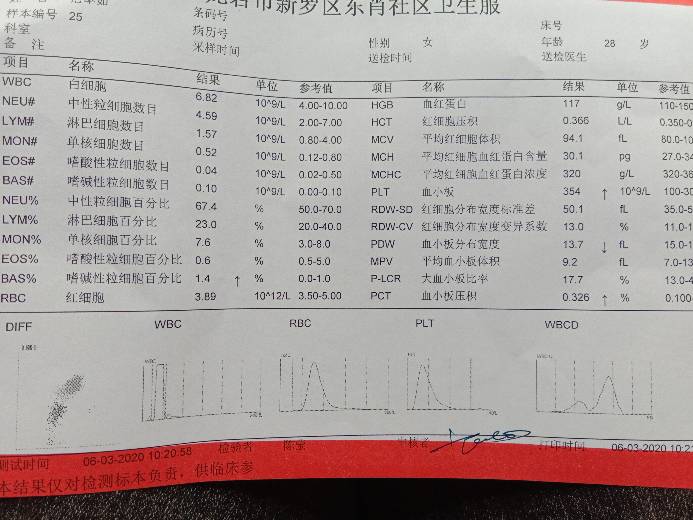 市新罗区东肖社区卫生服
样本编号 25 条码号 床号
科室 病历号 性别 女 年龄 28 岁
备 注 采样时间 送检时间 送检医生
项目 名称 结果 单位 参考值 项目 名称 结果 单位 参考值
WBC 白细胞 6.82 10^9/L 4.00-10.00 HGB 血红蛋白 117 g/L 110-150
NEU# 中性粒细胞数目 4.59 10^9/L 2.00-7.00 HCT 红细胞压积 0.366 L/L
LYM# 淋巴细胞数目 1.57 10^9/L 0.80-4.00 MCV 平均红细胞体积 94.1 fL
MON# 单核细胞数目 0.52 10^9/L 0.12-0.80 MCH 平均红细胞血红蛋白含量 30.1 pg
EOS# 嗜酸性粒细胞数目 0.04 10^9/L 0.02-0.50 MCHC 平均红细胞血红蛋白浓度 320 g/L
BAS# 嗜碱性粒细胞数目 0.10 10^9/L 0.00-0.10 PLT 血小板 354 ↑ 10^9/L
NEU% 中性粒细胞百分比 67.4 % 50.0-70.0 RDW-SD 红细胞分布宽度标准差 50.1 fL
LYM% 淋巴细胞百分比 23.0 % 20.0-40.0 RDW-CV 红细胞分布宽度变异系数 13.0 %
MON% 单核细胞百分比 7.6 % 3.0-8.0 PDW 血小板分布宽度 13.7 ↓ fL
EOS% 嗜酸性粒细胞百分比 0.6 % 0.5-5.0 MPV 平均血小板体积 9.2 fL
BAS% 嗜碱性粒细胞百分比 1.4 ↑ % 0.0-1.0 P-LCR 大血小板比率 17.7 %
RBC 红细胞 3.89 10^12/L 3.50-5.00 PCT 血小板压积 0.326 ↑ %
DIFF WBC RBC PLT WBCD
测试时间 06-03-2020 10:20:58 检验者 审核者 打印时间 06-03-2020
本结果仅对检测标本负责，供临床参